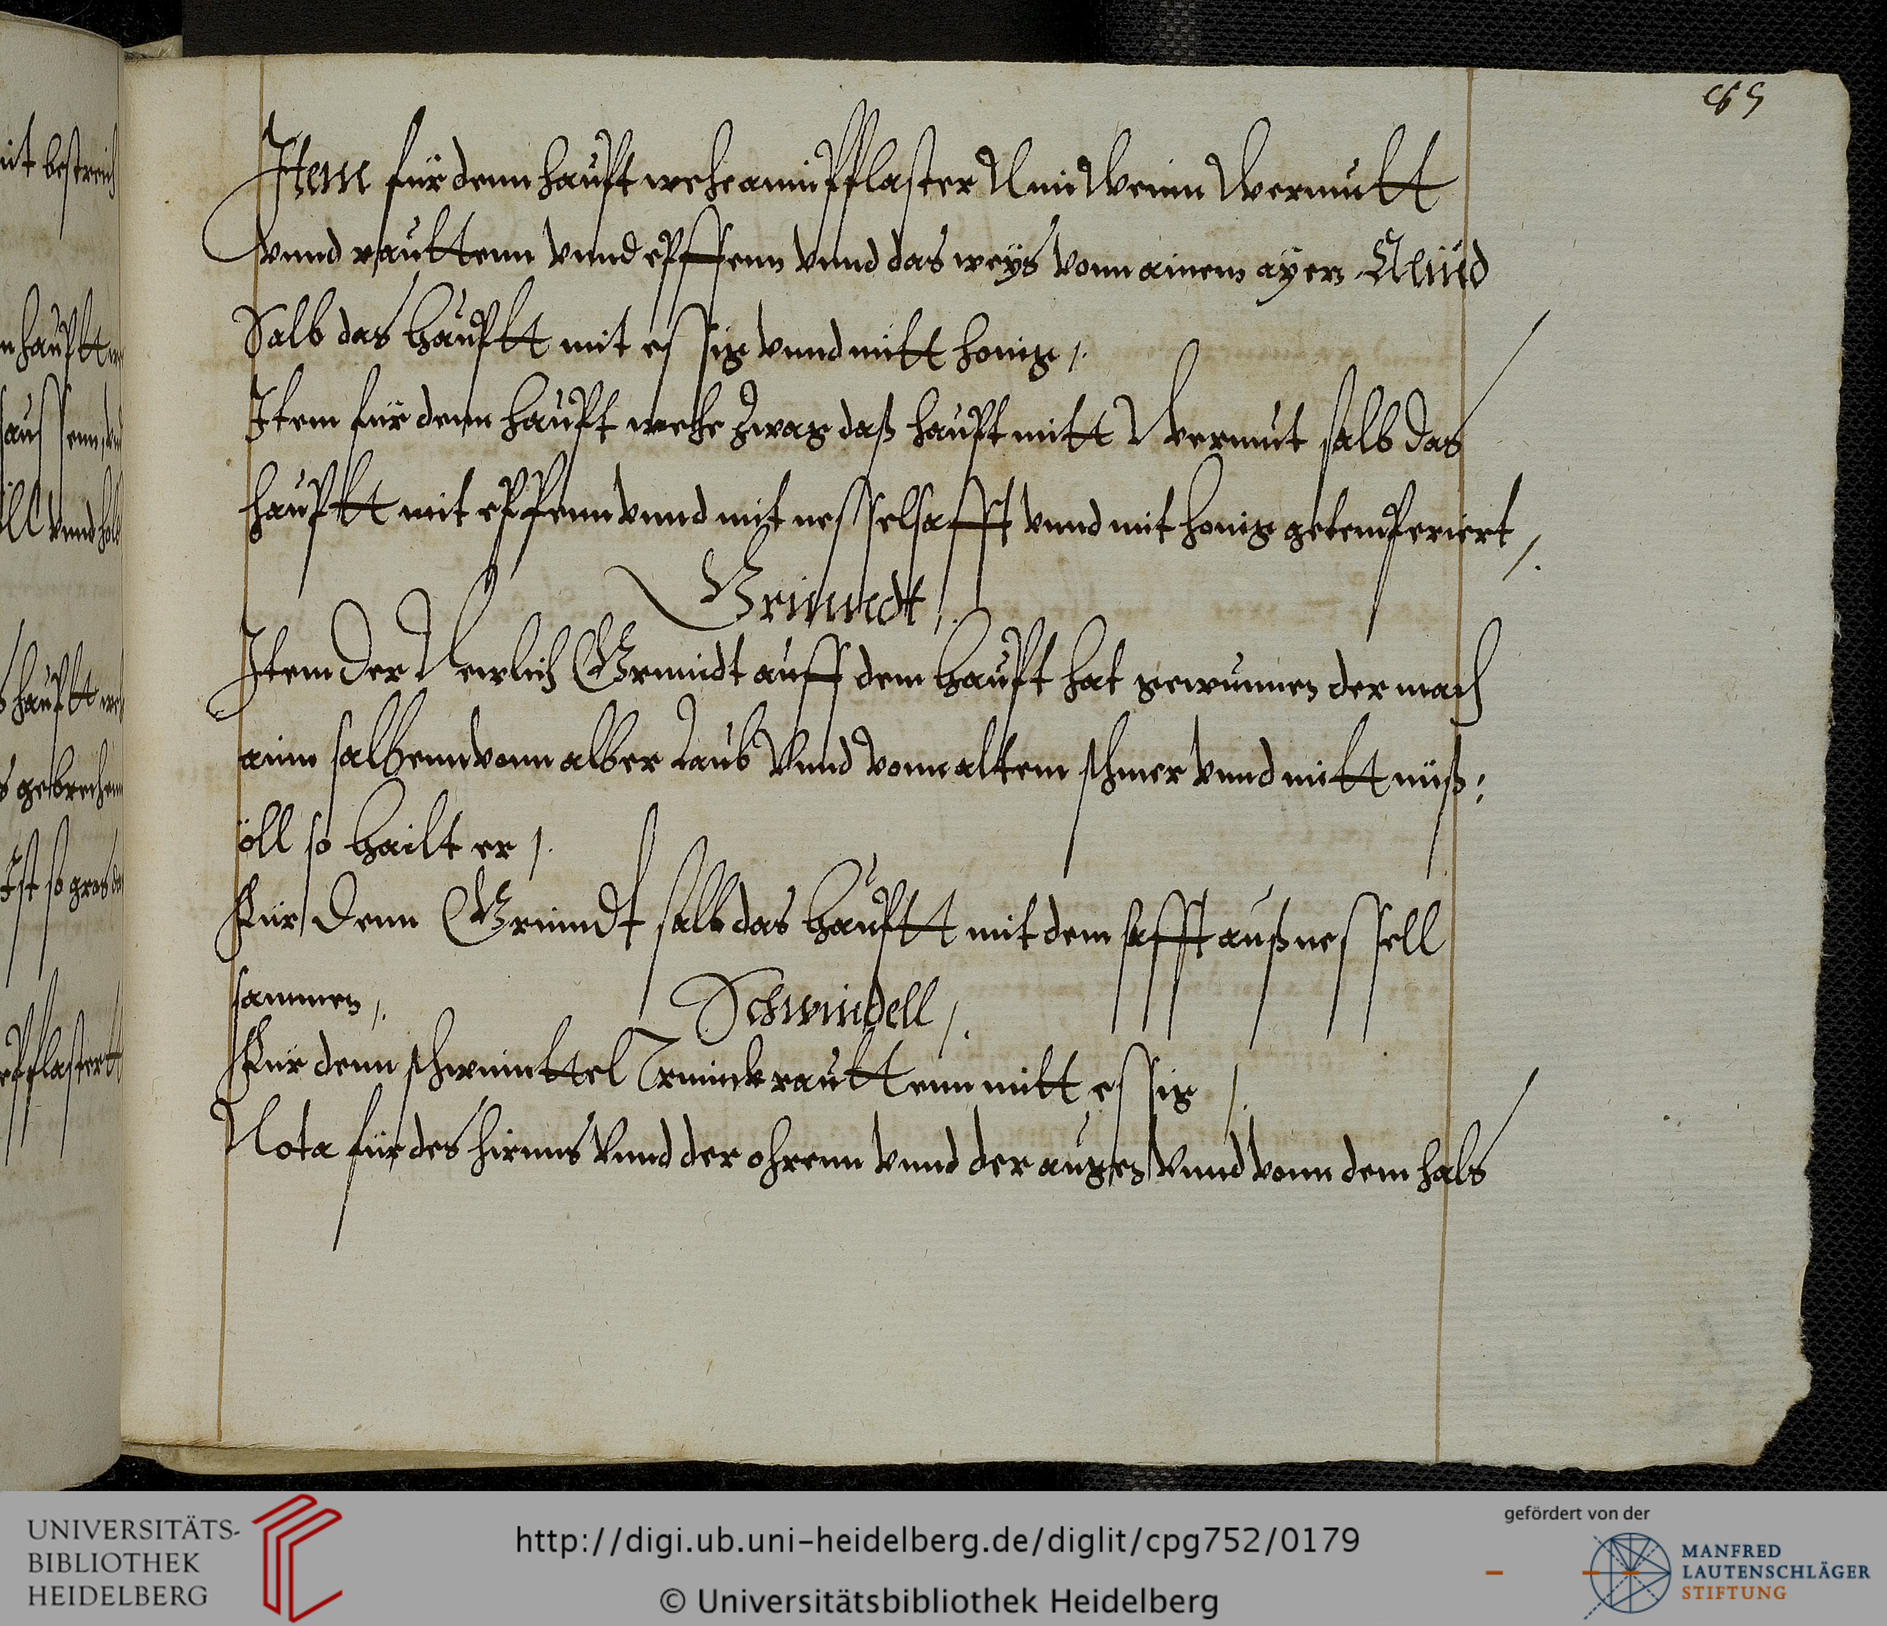 Item für denn hauptwehe ainn pfflaster Nim Weinn Wermutt
vnnd rauttenn vnnd epffenn vnnd das weys vonn ainem ayer Nund
Salb das hauptt mit essig vnnd mitt honig /.
Item für denn haupt wehe zwag daß haupt mitt Wermut salb das
hauptt mit epffenn vnnd mit nesselsafft vnnd mit honig getemperiert /.
Grinndt /.
Item Der Newlich Grinndt auff dem haupt hat gewunnen der mach
ainn salbenn vonn alber Laub Vnnd vonn altem schmer vnnd mitt nuß:
öll so hailt er /.
Für Denn Grinndt salb das hauptt mit dem safft auß nessell
sammen /.
Schwindell /.
Für denn schwinttel Trinnck rauttenn mitt essig /.
Nota für des hirnns Vnnd der ohrenn vnnd der augen Vnnd vonn dem hals
it bestreich
n hauptt we
haupt we
s gebrechenn
Ist so gros
pfflastertt
UNIVERSITÄTS-
BIBLIOTHEK
HEIDELBERG
http://digi.ub.uni-heidelberg.de/diglit/cpg752/0179
© Universitätsbibliothek Heidelberg
gefördert von der
MANFRED
LAUTENSCHLÄGER
STIFTUNG